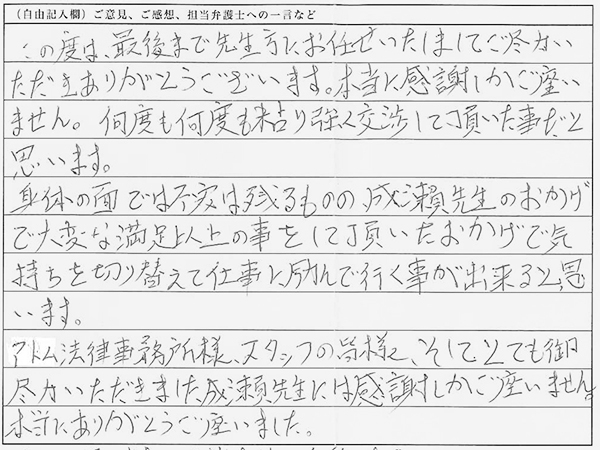 （自由記入欄）ご意見、ご感想、担当弁護士への一言など
この度は、最後まで先生方にお任せいたしましてご尽力い
ただきありがとうございます。本当に感謝しかご座い
ません。何度も何度も粘り強く交渉して頂いた事だと
思います。
身体の面では不安は残るものの、成瀬先生のおかげ
で大変な満足以上の事をして頂いたおかげで気
持ちを切り替えて仕事に励んで行く事が出来ると思
います。
アトム法律事務所様、スタッフの皆様と、そしてとても御
尽力いただきました成瀬先生には感謝しかご座いません。
本当にありがとうご座いました。